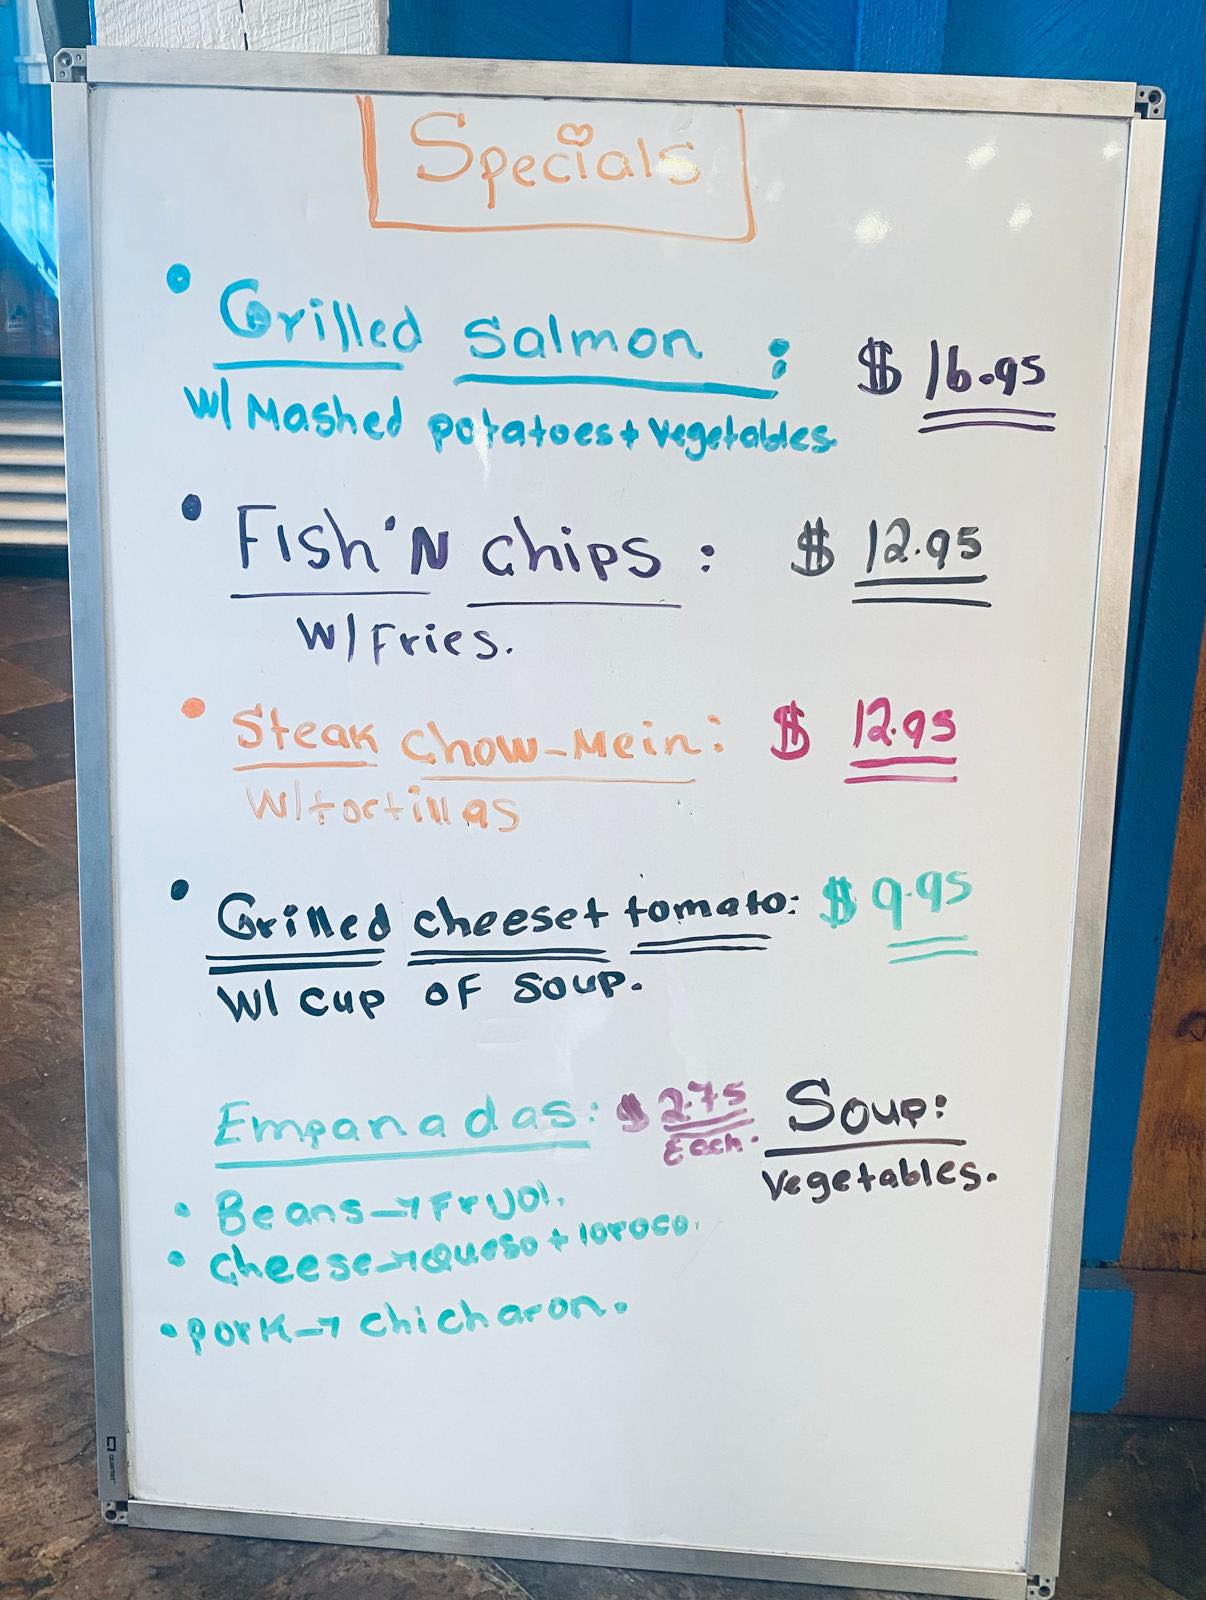 Specials
• Grilled Salmon : $ 16.95
W/ Mashed potatoes + Vegetables.
• Fish 'N chips : $ 12.95
W/ Fries.
• Steak Chow-Mein : $ 12.95
W/ tortillas
• Grilled cheese + tomato: $ 9.95
W/ cup OF soup.
Empanadas: $ 2.75 Each.
• Beans → Frijol.
• Cheese → Queso + loroco.
• pork → chicharon.
Soup:
Vegetables.